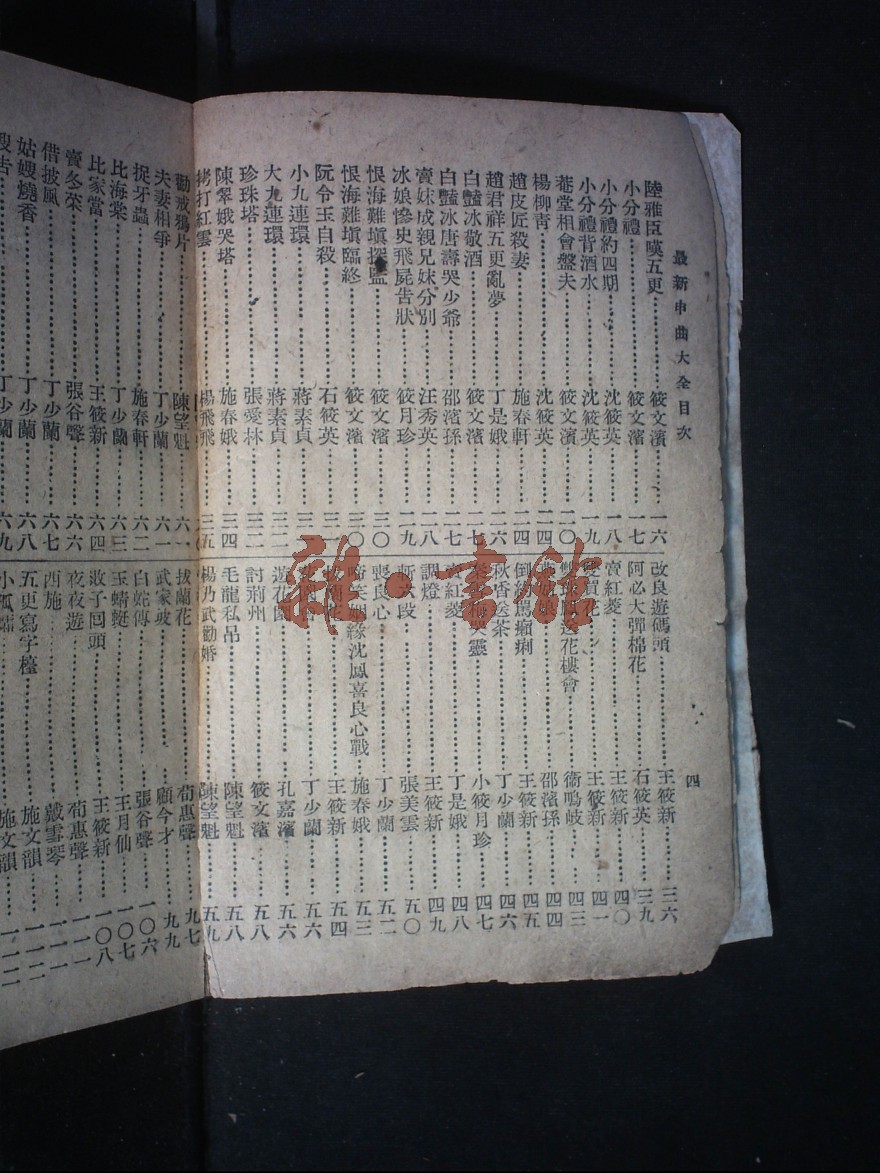 最新申曲大全目次
四
陸雅臣嘆五更 筱文濱 一六
小分禮 筱文濱 一七
小分禮約四期 沈筱英 一八
小分禮背酒水 沈筱英 一九
菴堂相會盤夫 筱文濱 二〇
楊柳青 沈筱英 二四
趙皮匠殺妻 施春軒 二四
趙君祥五更亂夢 丁是娥 二六
白豔冰敬酒 筱文濱 二七
白豔冰唐壽哭少爺 邵濱孫 二七
賣妹成親兄妹分別 汪秀英 二八
冰娘慘史飛屍告狀 筱月珍 二九
恨海難塡探監 筱文濱 三〇
恨海難塡臨終 筱文濱 三〇
阮令玉自殺 石筱英 三一
小九連環 蔣素貞
大九連環 蔣素貞 三二
珍珠塔 張愛林 三二
陳翠娥哭塔 施春娥 三四
拷打紅雲 楊飛飛 三五
改良遊碼頭 王筱新 三六
阿必大彈棉花 石筱英 三九
賣紅菱 王筱新 四〇
王筱新 四一
送花樓會 衞鳴岐 四三
邵濱孫 四四
倒 罵癩痢 王筱新 四五
秋香送茶 丁少蘭 四六
哭靈 小筱月珍 四七
賣紅菱 丁是娥 四八
調燈 王筱新 四九
段 張美雲 五〇
喪良心 丁少蘭 五二
啼笑姻緣沈鳳喜良心戰 施春娥 五三
王筱新 五四
丁少蘭 五六
遊花園 孔嘉濱 五六
討荊州 筱文濱 五八
毛龍私吊 陳望魁 五八
楊乃武勸婚 陳望魁 五九
勸戒鴉片 陳望魁 六一
夫妻相爭 丁少蘭 六一
捉牙蟲 施春軒 六二
比海棠 丁少蘭 六三
比家當 王筱新 六四
賣冬菜 張谷聲 六六
借披風 丁少蘭 六七
姑嫂燒香 丁少蘭 六八
丁少蘭 六九
拔蘭花 荀惠聲 九七
武家坡 顧今才 九九
白蛇傳 張谷聲 一〇六
玉蜻蜓 王月仙 一〇七
敗子回頭 王筱新 一〇八
夜夜遊 荀惠聲
西施 戴雪琴
五更寫字檯 施文韻
小孤孀 施文韻
雜·書館